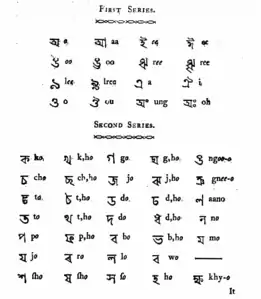 FIRST SERIES.
অ o আ aa ই ee ঈ ee
উ oo ঊ oo ঋ ree ৠ ree
ঌ lee ৡ lree এ a ঐ i
ও o ঔ ou অং ung অঃ oh
SECOND SERIES.
ক ko. খ k,ho গ go. ঘ g,ho. ঙ ngoo-o
চ cho ছ ch,ho জ jo ঝ j,ho. ঞ gnee-o
ট to. ঠ t,ho ড do. ঢ d,ho. ণ aano
ত to থ t,ho দ do ধ d,ho ন no
প po ফ p,ho ব bo ভ b,ho ম mo
য jo র ro ল lo ব wo ——
শ ſho ষ ſho স ſo হ ho ক্ষ khy-o
It